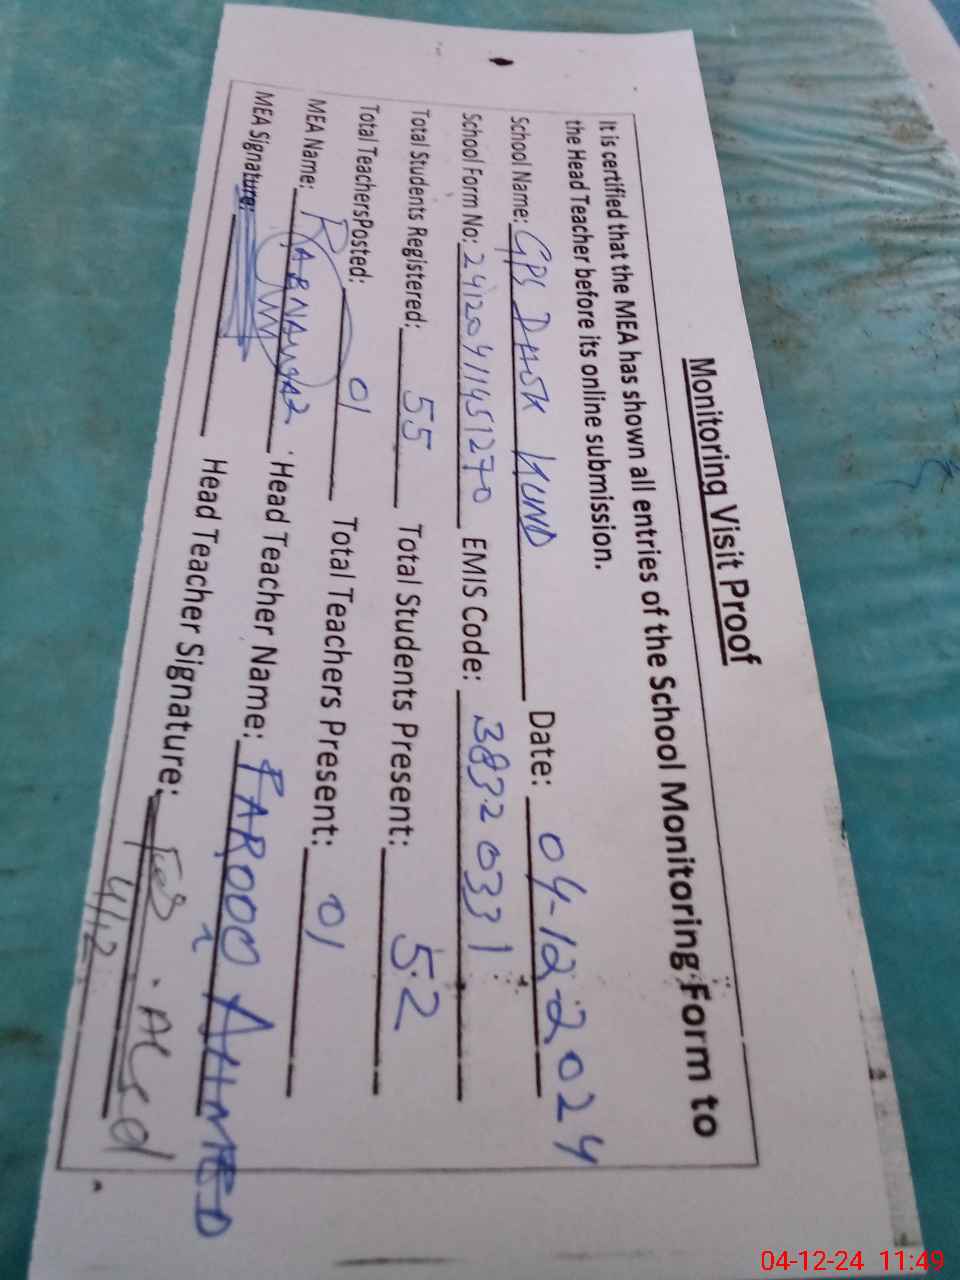 Monitoring Visit Proof
It is certified that the MEA has shown all entries of the School Monitoring Form to
the Head Teacher before its online submission.
School Name: GPS DASK KUND Date: 04-12-2024
School Form No: 24120411451270 EMIS Code: 38320331
Total Students Registered: 55 Total Students Present: 52
Total TeachersPosted: 01 Total Teachers Present: 01
MEA Name: Head Teacher Name: FAROOQ AHMED
MEA Signature: Head Teacher Signature:
4/12
04-12-24 11:49